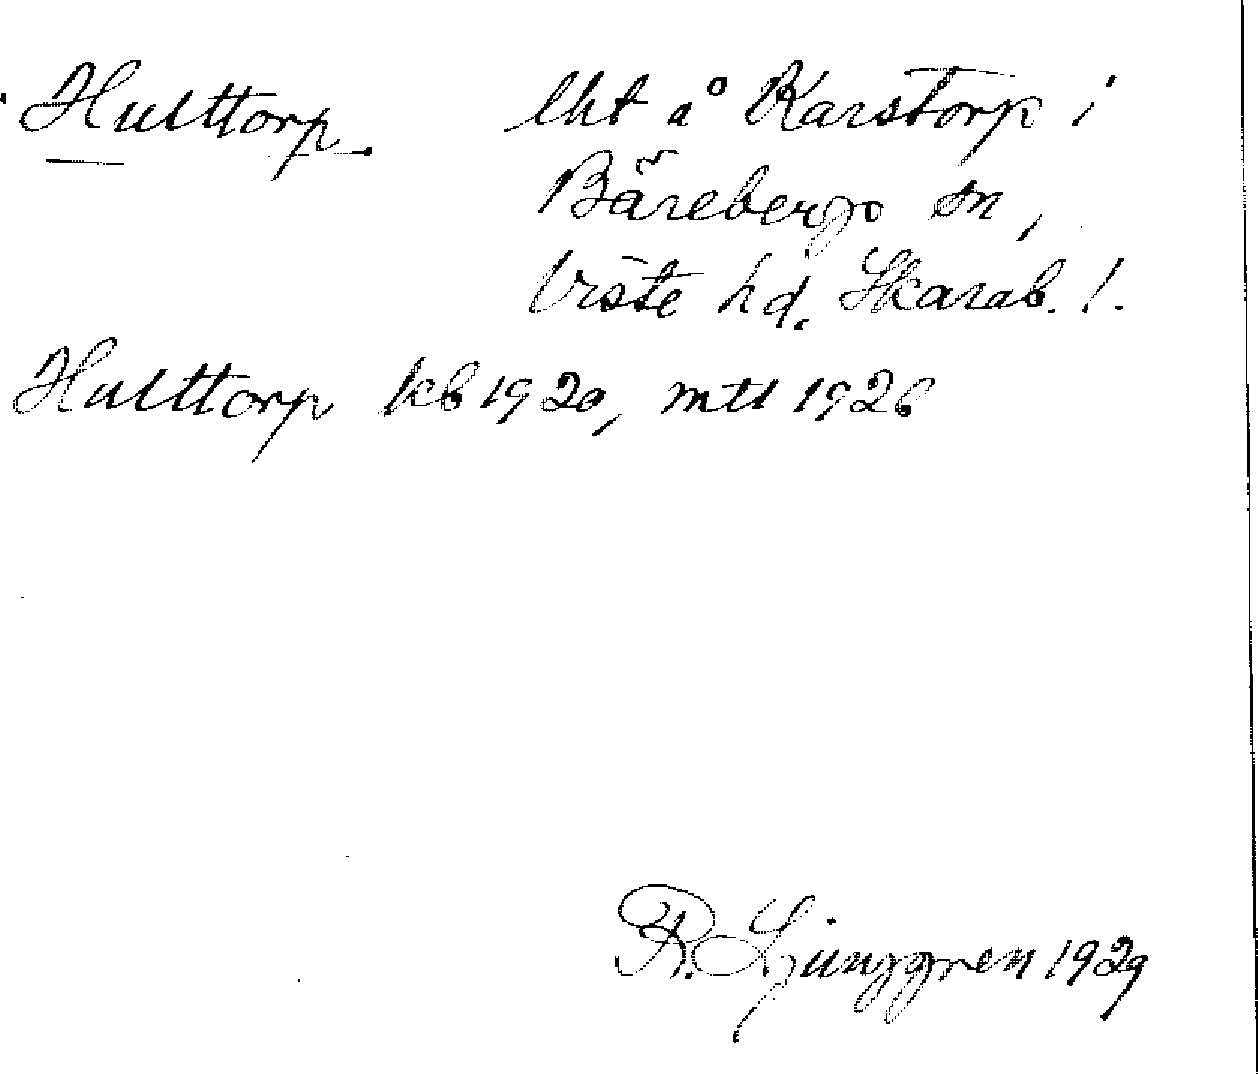 Hulttorp. lht å Karstorp i
Bärebergs sn,
Viste hd. Skarab. l.
Hulttorp kb 1920, mtl 1926
R. Ljunggren 1929